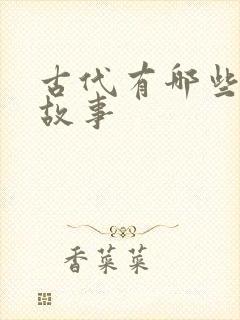 古代有哪些
故事
香菜菜